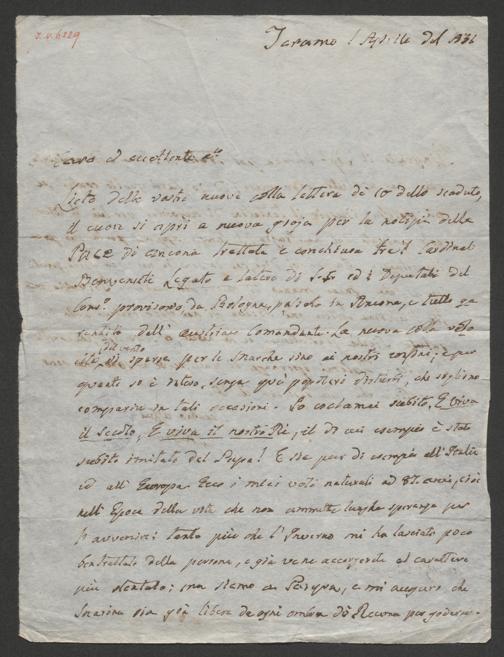 Teramo 1 Aprile del 1831
Caro ed eccellente
Lieto delle vostre nuove colla lettera de' 10 dello scaduto,
il cuore si aprì a nuova gioja per la notizia della
Pace di Ancona trattata e conchiusa tra il Cardinal
Benvenuti Legato a latere di S.S. ed i Deputati del
provisorio da Bologna, in Ancona, e tutto
dell' austriaco Comandante. La nuova colà
del vento
si sparse per le Marche sino ai nostri confini, e per
quanto se è inteso, senza que' popolari disturbi, che sogliono
comparire in tali occasioni. Io esclamai subito, E viva
il Secolo, E viva il nostro Re, il di cui esempio è stato
subito imitato dal Papa! E sia pur di esempio all'Italia
ed all' Europa. Ecco i miei voti naturali ad 87. anni, cioè
nell' Epoca della vita che non ammette lunghe speranze per
l'avvenire: tanto più che l'Inverno mi ha lasciato poco
bentrattato della persona, e già vene accorgerete al carattere
più stentato; ma siamo a Pasqua, e mi auguro che
Marina sia già libera da ogni ombra di per godersi